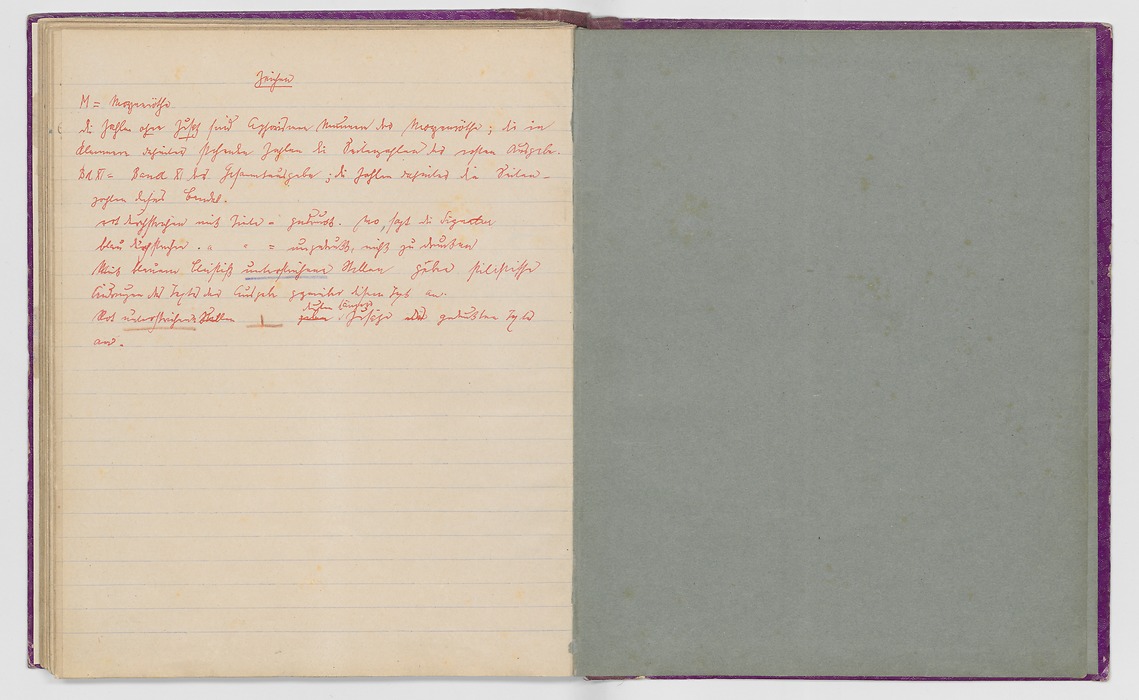 Zeichen
M = Morgenröthe
die Zahlen ohne Zusatz sind Aphorismen Nummern der Morgenröthe; die in
Klammern dahinter stehenden Zahlen die Seitenzahlen der ersten Ausgabe.
Bd. XI = Band XI der Gesamtausgabe; die Zahlen dahinter die Seiten-
zahlen dieses Bandes.
rot durchstrichen mit = gedruckt. Wo, sagt die
blau durchstrichen " " = ungedruckt, nicht zu drucken
Mit blauem Bleistift unterstrichene Stellen geben stilistische
Änderungen des Textes der Ausgabe gegenüber diesem Text an.
Rot unterstrichene Stellen Zusätze des gedruckten Textes
an.